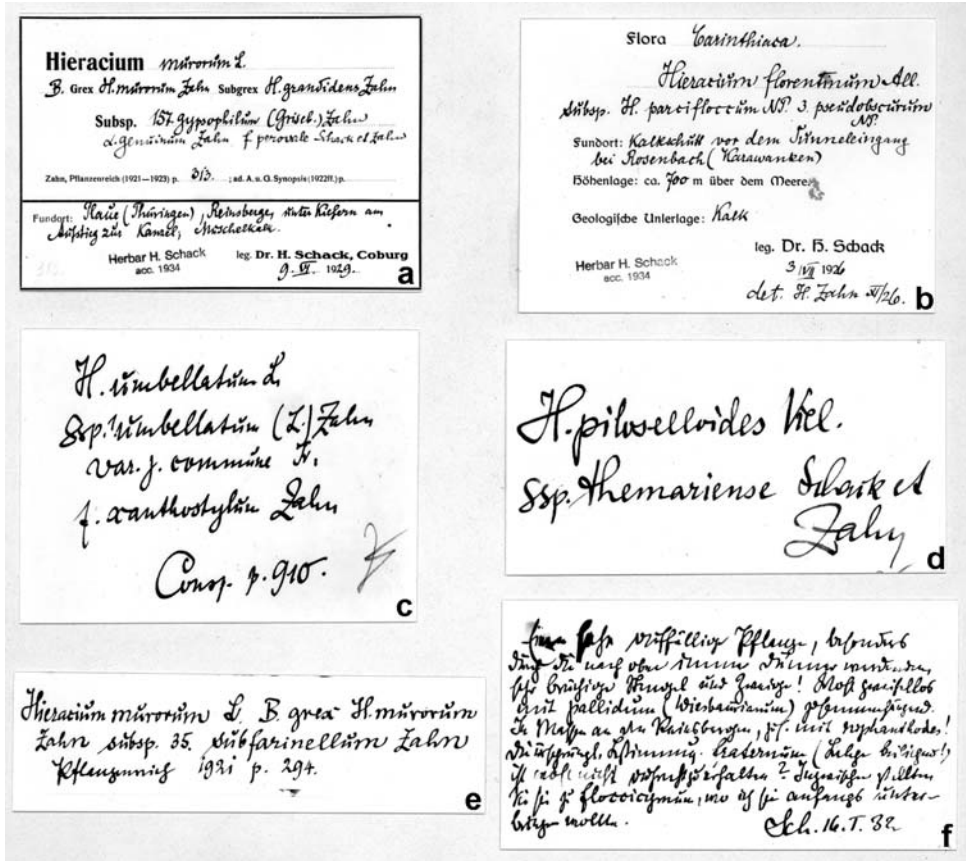 Hieracium murorum L.
B. Grex H. murorum Zahn Subgrex H. grandidens Zahn
Subsp. 157. gypsophilum (Griseb.) Zahn
α. genuinum Zahn f. perovale Schack et Zahn
Zahn, Pflanzenreich (1921—1923) p. 313. ; ad. A. u. G. Synopsis (1922ff.) p.
Fundort: Plaue (Thüringen), Reinsberge, unter Kiefern am
Aufstieg zur Kanzel, Muschelkalk.
Herbar H. Schack
acc. 1934
leg. Dr. H. Schack, Coburg
9. VI. 1929.
a
Flora Carinthiaca.
Hieracium florentinum All.
subsp. H. parcifloccum NP. 3. pseudobscurum
NP.
Fundort: Kalkschutt vor dem Tunneleingang
bei Rosenbach (Karawanken)
Höhenlage: ca. 700 m über dem Meere
Geologische Unterlage: Kalk
leg. Dr. H. Schack
Herbar H. Schack
acc. 1934
3 VII 1926
det. H. Zahn XI/26.
b
H. umbellatum L.
ssp. umbellatum (L.) Zahn
var. j. commune Fr.
f. xanthostylum Zahn
Consp. p. 910.
c
H. piloselloides Vill.
ssp. themariense Schack et
Zahn
d
Hieracium murorum L. B. grex H. murorum
Zahn subsp. 35. subfarinellum Zahn
Pflanzenreich 1921 p. 294.
e
auffällige Pflanze, besonders
nach oben immer dünner werdenden,
sehr brüchige Stengel und Zweige! Wohl zweifellos
mit pallidum (Wiesbaurianum) zusammenhängend.
In Massen an den Reinsbergen, mit
Bestimmung
ist wohl nicht aufrechtzuerhalten? Inzwischen stellten
Sie sie zu floccicymum, wo ich sie anfangs unter-
bringen wollte.
Sch. 16. I. 32
f